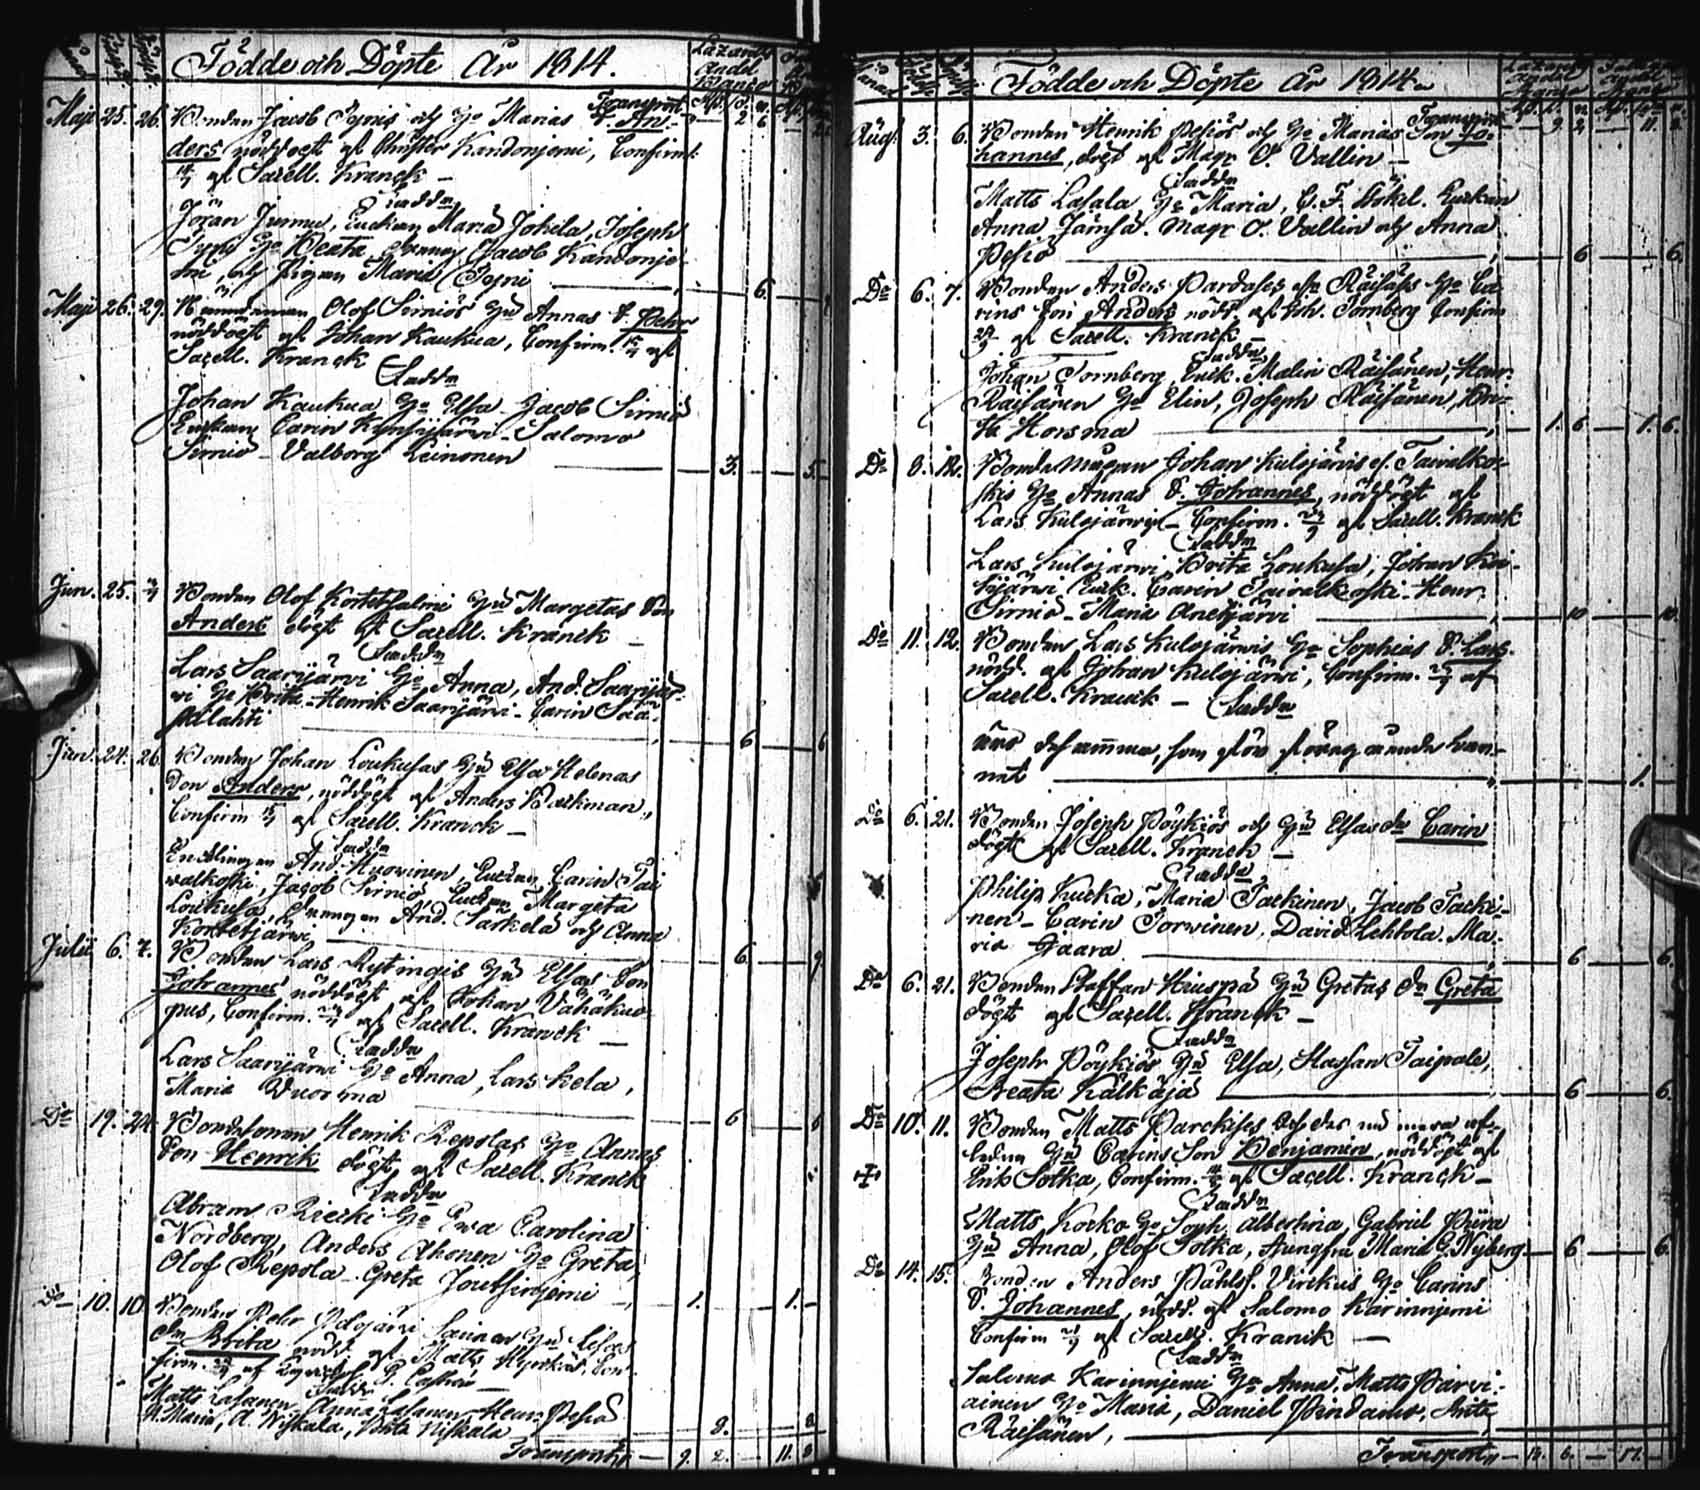 Födde och Döpte År 1814.
Lazaretts
Andel
Banco
Transport
Maji 25. 26. Bonden Jacob Tyynis och Hu Marias S. An-
ders nöddöpt af Christer Kandonjemi, Confirm.
af Sacell. Kranck —
Faddr
Jöran Jurmu, Enckan Maria Johila, Joseph
Hu Beata, Jacob Kandonje-
mi, och Pigan Maria Tyyni — 6.
Maji 26. 29. Nämndeman Olof Sirniös Hu Annas S. Pehr
nöddöpt af Johan Kaukua, Confirm. af
Sacell. Kranck
Faddr
Johan Kaukua Hu Elsa - Jacob Sirniö
Enckan Carin Kynsijärvi - Salomo
Sirniö - Valborg Leinonen — 3. — 5.
Jun. 25. Bonden Olof Kortetsalmi Hu Margetas Son
Anders döpt af Sacell. Kranck —
Faddr
Lars Saarijärvi Hu Anna, And. Saarijär-
vi Hu Brita - Henrik Saarijärvi - Carin Sää-
skilahti — 6
Jun. 24. 26. Bonden Johan Loukusas Hu Elsa Helenas
Son Anders, nöddöpt af Anders Barkman,
Confirm af Sacell. Kranck —
Faddr
And. Huovinen, Enckan Carin Tai
walkoski, Jacob Sirniö, Enckan Margeta
Loukusa, And. Särkelä och Anna
Kortetjärvi — 6.
Julii 6. 7. Bonden Lars Rytingis Hu Elsas Son
Johannes nöddöpt af Johan Vähäkuo-
pus, Confirm. af Sacell. Kranck —
Faddr
Lars Saarijärvi Hu Anna, Lars Kela,
Maria Vuorma — 6
Do 19. 24. Bondesonen Henrik Repolas Hu Annas
Son Henrik döpt af Sacell. Kranck
Faddr
Abram Riecki Hu Ewa Carolina
Nordberg, Anders Ahonen Hu Greta,
Olof Repola - Greta Joutsinjemi — 1. — 1. —
Do 10. 10. Bonden Pehr Hu Lisas
Dr Brita nödd. af Matts Con-
firm. af
Matts Lasanen - Anna Lasanen - Henr. Pesiö
H. Maria, A. Niskala, Brita Niskala — 8.
Transport — 9. 2. — 11. 8
Födde och Döpte År 1814.
Lazaretts
Andel
Banco
Transport 9. 2 — 11.
Aug. 3. 6. Bonden Henrik Pesiös och Hu Marias Son Jo-
hannes, döpt af Magr O. Vallin —
Faddr
Matts Lasala Hu Maria, C. F. Enckan
Anna Jämsä. Magr O. Vallin och Anna
Pesiö — 6 — 6.
Do 6. 7. Bonden Anders Räisäs Hu Ca-
rins Son Anders nödd. af Joh. Tornberg Confirm
af Sacell. Kranck —
Faddr
Johan Tornberg, Enck. Malin Räisänen, Henr.
Räisänen Hu Elin, Joseph Räisänen, Bri-
ta Horsma — 1. 6 — 1. 6.
Do 8. 12. Bondemågen Johan Kulojärvis el. Taivalko-
skis Hu Annas S. Johannes, nöddöpt af
Lars Kulojärwi - Confirm. af Sacell. Kranck
Faddr
Lars Kulojärwi, Brita Loukusa, Johan Koi-
tijärwi Enck. Carin Taivalkoski - Henr.
Sirniö - Maria Anetjärvi — 10 — 10.
Do 11. 12. Bonden Lars Kulojärwis Hu Sophias S. Lars.
nödd. af Johan Kulojärwi, Confirm. af
Sacell. Kranck — Faddr
äro desamma, som för föregående barn-
net — 1.
Do 6. 21. Bonden Joseph Pöykiös och Hu Elsas Dr Carin
döpt af Sacell. Kranck —
Faddr
Philip Kurka, Maria Tackinen, Jacob Tacki-
nen - Carin Torwinen, David Lehtola. Ma-
ria Jaara — 6 — 6.
Do 6. 21. Bonden Staffan Hu Gretas Dr Greta
döpt af Sacell. Kranck —
Faddr
Joseph Pöykiö Hu Elsa, Staffan Taipale,
Beata Kälkäjä — 6 — 6.
Do 10. 11. Bonden Matts och des nu mera af-
ledna Hu Carins Son Benjamin, nöddöpt af
Erik Sotka, Confirm. af Sacell. Kranck —
Faddr
Matts Korko Hu Soph. Albertina, Gabriel
Hu Anna, Olof Sotka, Jungfru Maria C. Nyberg — 6 — 6.
Do 14. 15. Bonden Anders Påhls. Virckus Hu Carins
S. Johannes, nödd. af Salomo Karinnjemi
Confirm af Sacell. Kranck —
Faddr
Salomo Karinnjemi Hu Anna, Matts Parvi-
ainen Hu Maria, Daniel Pindamo, Anta
Räisänen, —
Transport